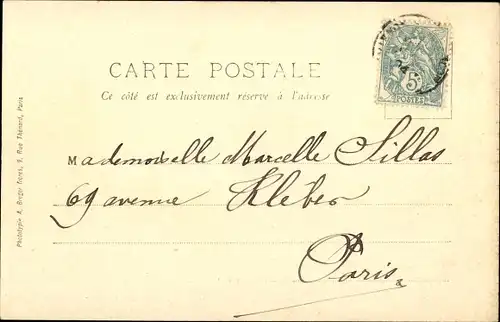 CARTE POSTALE
Ce côté est exclusivement réservé à l'adresse
5c
POSTES
Mademoiselle Marcelle Sillas
69 avenue Kleber
Paris
Phototypie A. Breger frères, 9, Rue Thénard, Paris